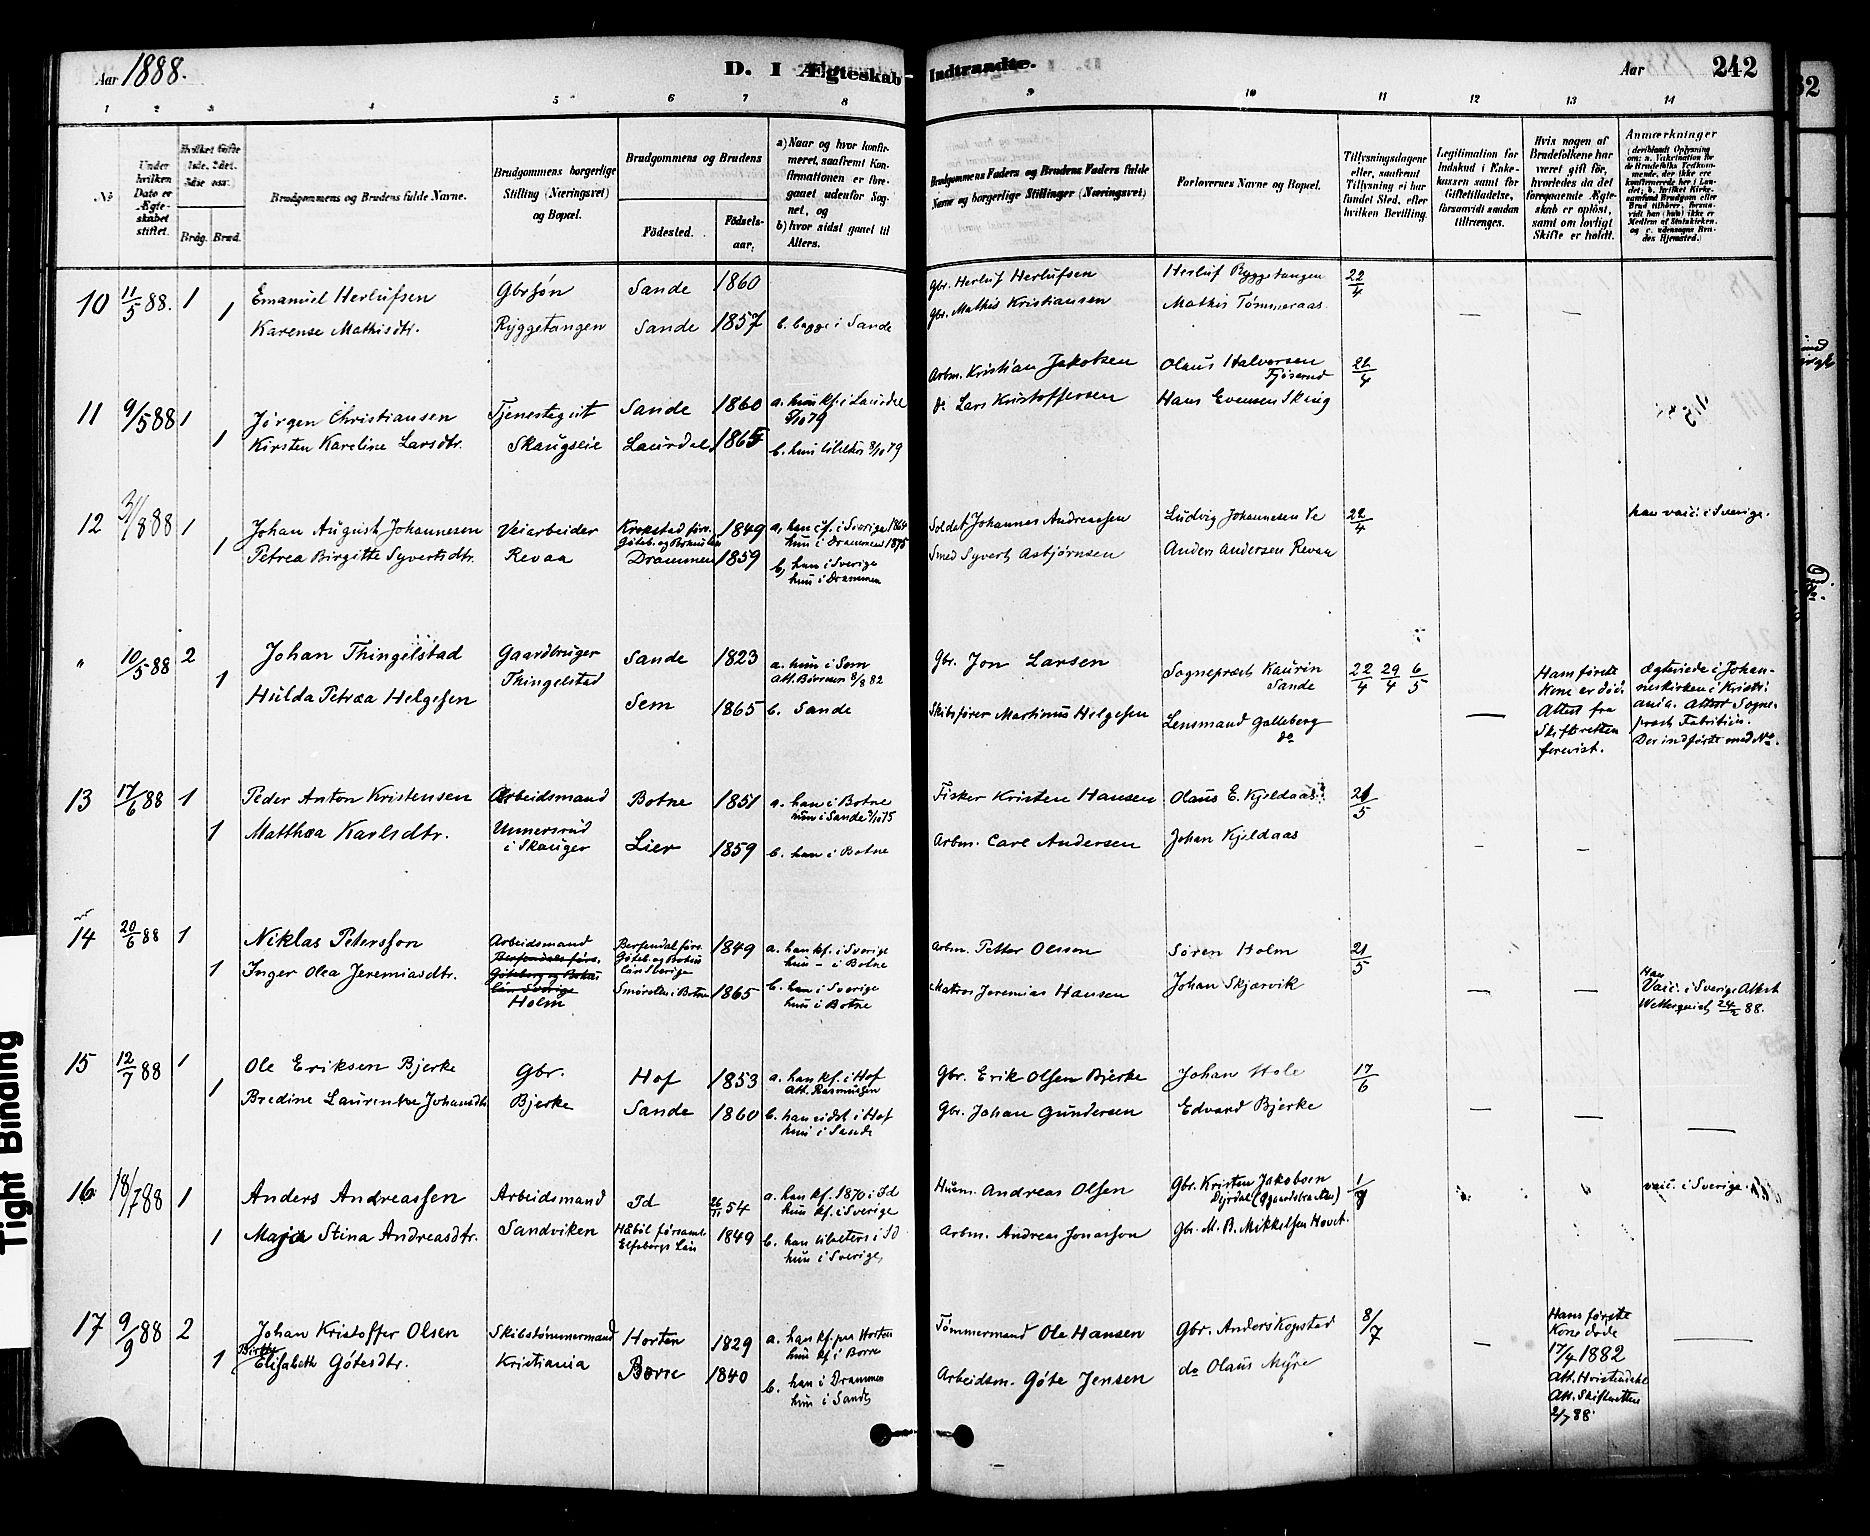 Aar 1888.
D. I Ægteskab Indtraadte.
Aar 242
1 2 3 4 5 6 7 8 9 10 11 12 13 14
No
Under hvilken Dato er Ægteskabet stiftet.
Hvilket Gifte
Brdg. Brud.
Brudgommens og Brudens fulde Navne.
Brudgommens borgerlige Stilling (Næringsvei) og Bopæl.
Brudgommens og Brudens
Fødested.
Fødselsaar.
a) Naar og hvor konfirmeret, saafremt Konfirmationen er foregaaet udenfor Sognet, og
b) hvor sidst gaaet til Alters.
Brudgommens Faders og Brudens Faders fulde Navne og borgerlige Stillinger (Næringsvei).
Forlovernes Navne og Bopæl.
Tillysningsdagene eller, saafremt Tillysning ei har fundet Sted, efter hvilken Bevilling.
Legitimation for Indskud i Enkekassen samt for Giftetilladelse, forsaavidt saadan tiltrænges.
Hvis nogen af Brudefolkene har været gift før, hvorledes da det foregaaende Ægteskab er opløst, samt om lovligt Skifte er holdt.
Anmærkninger
10 11/5 88. 1 Emanuel Herlufsen Gbrsøn Sande 1860 Gbr. Herluf Herlufsen Herluf Ryggetangen 22/4
1 Karense Mathisdtr. Ryggetangen Sande 1857 b. begge i Sande Gbr. Mathis Kristiansen Mathis Tømmeraas — —
11 9/5 88 1 Jørgen Christiansen Tjenestegut Sande 1860 a. hun kf. i Laurdal 5/10 79 Arbm. Kristian Jakobsen Olaus Halvorsen Fjøserud 22/4
1 Kirsten Kareline Larsdtr. Skaugseie Laurdal 1865 b. hun tilalters 8/10 79 do Lars Kristoffersen Hans Evensen Skaug
12 31/8 88 1 Johan August Johannesen Veiarbeider Krokstad førs. Göteb. og Bohuslen 1849 a, han cf. i Sverige 1864 hun i Drammen 1875 Soldat Johannes Andreassen Ludvig Johannesen Ve 22/4 han vacc. i Sverige.
1 Petrea Birgitte Syvertsdtr. Revaa Drammen 1859 b, han i Sverige hun i Drammen Smed Syvert Asbjørnsen Anders Andersen Revaa
" 10/5 88 2 Johan Thingelstad Gaardbruger Sande 1823 a. hun i Sem Att. Børresen 8/8 82 Gbr. Jon Larsen Sognepræst Kaurin Sande 22/4 29/4 6/5 Hans første Kone er død. Attest fra Skifteretten forevist. Ægteviede i Johanneskirken i Kristiania. Attest Sognepræst Fabritius. Der indførte med No.
1 Hulda Petrea Helgesen Thingelstad Sem 1865 b. Sande Skibsfører Martinus Helgesen Lensmand Galleberg do —
13 17/6 88 1 Peder Anton Kristensen Arbeidsmand Botne 1851 a. han i Botne hun i Sande 3/10 75 Fisker Kristen Hansen Olaus E. Kjeldaas 21/5
1 Matthea Karlsdtr. Unnersrud i Skouger Lier 1859 b. han i Botne Arbm. Carl Andersen Johan Kjeldaas — —
14 20/6 88 1 Niklas Petersson Arbeidsmand Berfendal førs. Göteb. og Bohus län Sverige 1849 a. han kf. i Sverige hun - i Botne Arbm. Petter Olsson Søren Holm 21/5
1 Inger Olea Jeremiasdtr. Berfendals førs. Göteborg og Bohus län Sverige Holm Smørsten i Botne 1865 b. han i Sverige hun i Botne Matros Jeremias Hansen Johan Skjærvik — — Han Vacc. i Sverige Attest Wetterquist 24/2 88.
15 12/7 88 1 Ole Eriksen Bjerke Gbr. Hof 1853 a. han kf. i Hof Att. Rasmussen Gbr. Erik Olsen Bjerke Johan Hole 17/6
1 Bredine Laurentse Johansdtr Bjerke Sande 1860 b. han sidst i Hof hun i Sande Gbr. Johan Gundersen Edvard Bjerke — — —
16 18/7 88 1 Anders Andreassen Arbeidsmand Id 26/11 54 a. han kf. 1870 i Id hun kf. i Sverige Husm. Andreas Olsen Gbr. Kristen Jakobsen 1/7 vacc. i Sverige.
1 Maja Stina Andreasdtr. Sandviken Häböl forsaml. Elfsborgs Län 1849 b. han tilalters i Id hun i Sverige Arbm. Andreas Jonasson Gbr. M. B. Mikkelsen Hovet.
17 9/9 88 2 Johan Kristoffer Olsen Skibstømmermand Horten 1829 a. han kf. paa Horten hun kf. i Borre Tømmermand Ole Hansen Gbr. Anders Kopstad 8/7 Hans første Kone døde 17/4 1882 Att. Skifteretten 2/7 88. —
1 Elisabeth Gøtesdtr. Kristiania Borre 1840 b. han i Drammen hun i Sande Arbeidsm. Gøte Jensen do Olaus Myre —
Tight Binding